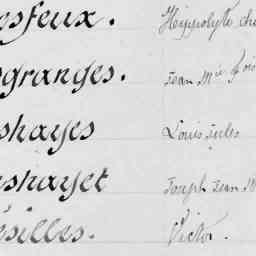 esfeux. Hippolyte che
sgranges. Jean Mie
shayes Louis Jules
eshayet Joseph Jean M
ésilles. Victor.